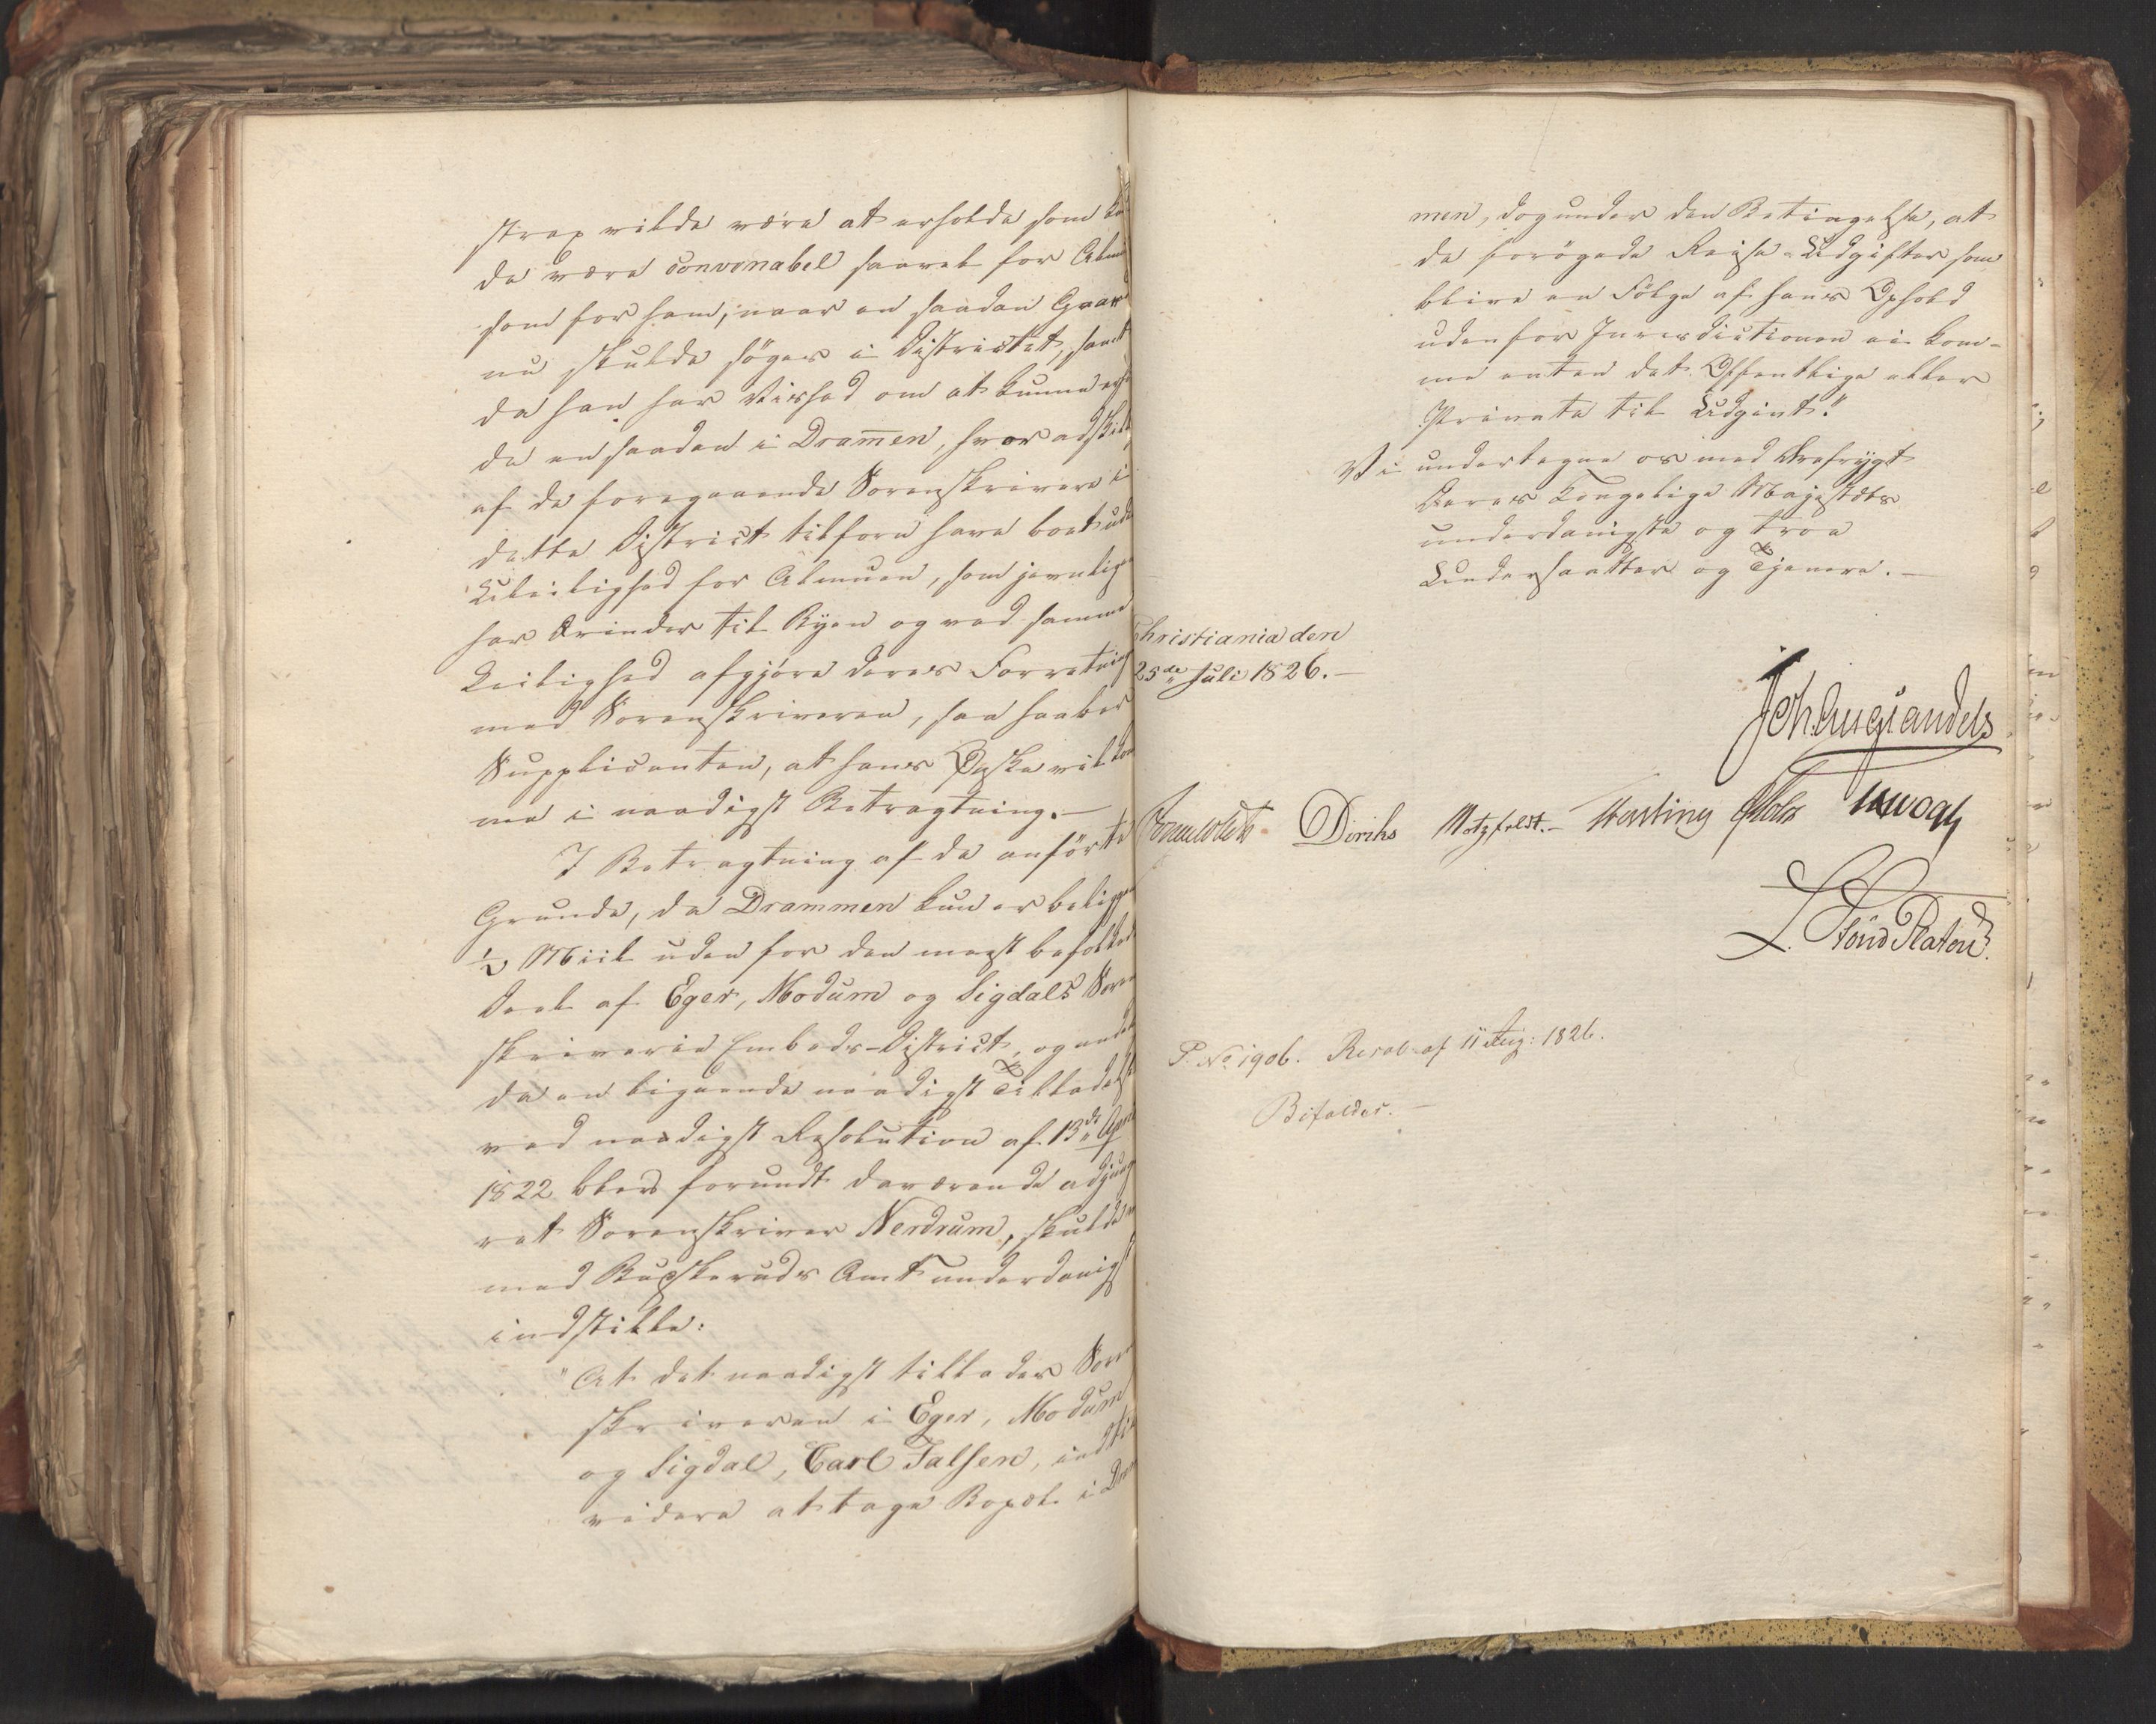 strax vilde være at erholde som
de være convenabel saavel for Almu
som for ham, naar en saadan Gaar
nu skulde søges i Districtet, samt
da han har Vished om at kunne
de en saadan i Dram̄en, hvor adskil
af de foregaaende Sorenskrivere i
dette District tilforn have boet ude
Uleilighed for Almuen, som jevnlige
har Ærinder til Byen og ved samme
Leilighed afgjøre deres Forretning
med Sorenskriveren, saa haaber
Supplicanten, at hans Ønske vil kom
me i naadigst Betragtning.—
I Betragtning af de anførte
Grunde, da Drammen kun er beligge
½ Miil uden for den meest befolkede
Deel af Eger, Modum og Sigdals Soren
skriverie Embeds-District, og
da en lignende naadigst Tilladelse
ved naadigst Resolution af 13de April
1822 blev forundt daværende adjung
ret Sorenskriver Nerdrum, skulde
med Buskeruds Amt underdanigst
indstille:
"At det naadigst tillades Soren
skriveren i Eger, Modum
og Sigdal, Carl Falsen, indtil
videre at tage Bopæl i Dram
men, dog under den Betingelse, at
de forøgede Reise-Udgifter som
blive en Følge af hans Ophold
udenfor Jurisdictionen ei kom-
me enten det Offentlige eller
Private til Udgivt."
Vi undertegne os med Ærefrygt
Deres Kongelige Majestæts
underdanigste og troe
Undersaatter og Tjenere.—
Christiania den
25de Juli 1826.—
Joh. Aug. Sandels
Sommerfeldt Diriks Motzfeldt.— Fasting JHVogt
L. Stoud Platou
P. No 1906. Resol. af 11 Aug: 1826.
Bifaldes.—